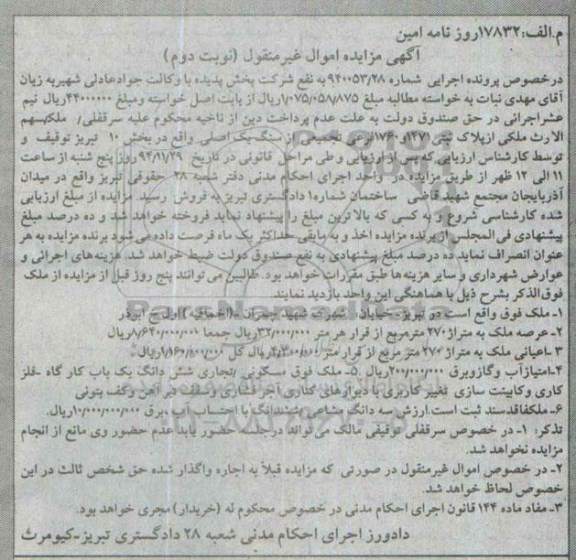 م.الف:۱۷۸۳۲روز نامه امین
آگهی مزایده اموال غیرمنقول (نوبت دوم)
درخصوص پرونده اجرایی شماره ۹۴۰۰۵۳/۲۸ به نفع شرکت پخش پدیده با وکالت جوادعادلی شهیربه زیان
آقای مهدی نبات به خواسته مطالبه مبلغ ۱/۰۷۵/۰۵۸/۸۷۵ریال از بابت اصل خواسته ومبلغ ۴۴۰۰۰۰۰۰ ریال نیم
عشراجرائی در حق صندوق دولت به علت عدم پرداخت دین از ناحیه محکوم علیه سرقفلی/ ملک/سهم
الارث ملکی ازپلاک ثبتی تجمیعی از سنگ یک اصلی واقع در بخش ۱۰ تبریز توقیف و
توسط کارشناس ارزیابی که پس از ارزیابی و طی مراحل قانونی در تاریخ ۹۴/۱/۲۹ روز پنج شنبه از ساعت
۱۱ الی ۱۲ ظهر از طریق مزایده در واحد اجرای احکام مدنی دفتر شعبه ۲۸ حقوقی تبریز واقع در میدان
آذربایجان مجتمع شهید قاضی ساختمان شماره۱ دادگستری تبریز به فروش رسید مزایده از مبلغ ارزیابی
شده کارشناسی شروع و به کسی که بالا ترین مبلغ را پیشنهاد نماید فروخته خواهد شد و ده درصد مبلغ
پیشنهادی فی المجلس از برنده مزایده اخذ و به مابقی حداکثر یک ماه فرصت داده می شود برنده مزایده به هر
عنوان انصراف نماید ده درصد مبلغ پیشنهادی به نفع صندوق دولت ضبط خواهد شد. هزینه های اجرائی و
عوارض شهرداری و سایر هزینه ها طبق مقررات خواهد بود. طالبین می توانند پنج روز قبل از مزایده از ملک
فوق الذکر بشرح ذیل با هماهنگی این واحد بازدید نمایند.
۱- ملک فوق واقع است در تبریز-خیابان شهید چمران اول خ ابوذر
۲- عرصه ملک به متراژ ۲۷۰ مترمربع از قرار هر متر ۳۲/۰۰۰/۰۰۰ریال جمعا ۸/۶۴۰/۰۰۰/۰۰۰ریال
۳-اعیانی ملک به متراژ ۲۷۰ متر مربع از قرار متر ریال کل ریال
۴-امتیازآب وگازوبرق ۲۰۰/۰۰۰/۰۰۰ریال .۵- ملک فوق مسکونی /تجاری شش دانگ یک باب کار گاه -فلز
کاری وکابینت سازی تغییر کاربری با دیوارهای کناری آجر فشاری وسقف تیر آهن وکف بتونی
۶-ملک فاقدسند ثبت است.ارزش سه دانگ مشاعی ششدانگ با احتساب آب ،برق ۱۰/۰۰۰/۰۰۰/۰۰۰ریال.
تذکر: ۱- در خصوص سرقفلی توقیفی مالک می تواند درجلسه حضور یابدعدم حضور وی مانع از انجام
مزایده نخواهد شد.
۲- در خصوص اموال غیرمنقول در صورتی که مزایده قبلاً به اجاره واگذار شده حق شخص ثالث در این
خصوص لحاظ خواهد شد.
۳- مفاد ماده ۱۴۴ قانون اجرای احکام مدنی در خصوص محکوم له (خریدار) مجری خواهد بود.
دادورز اجرای احکام مدنی شعبه ۲۸ دادگستری تبریز-کیومرث